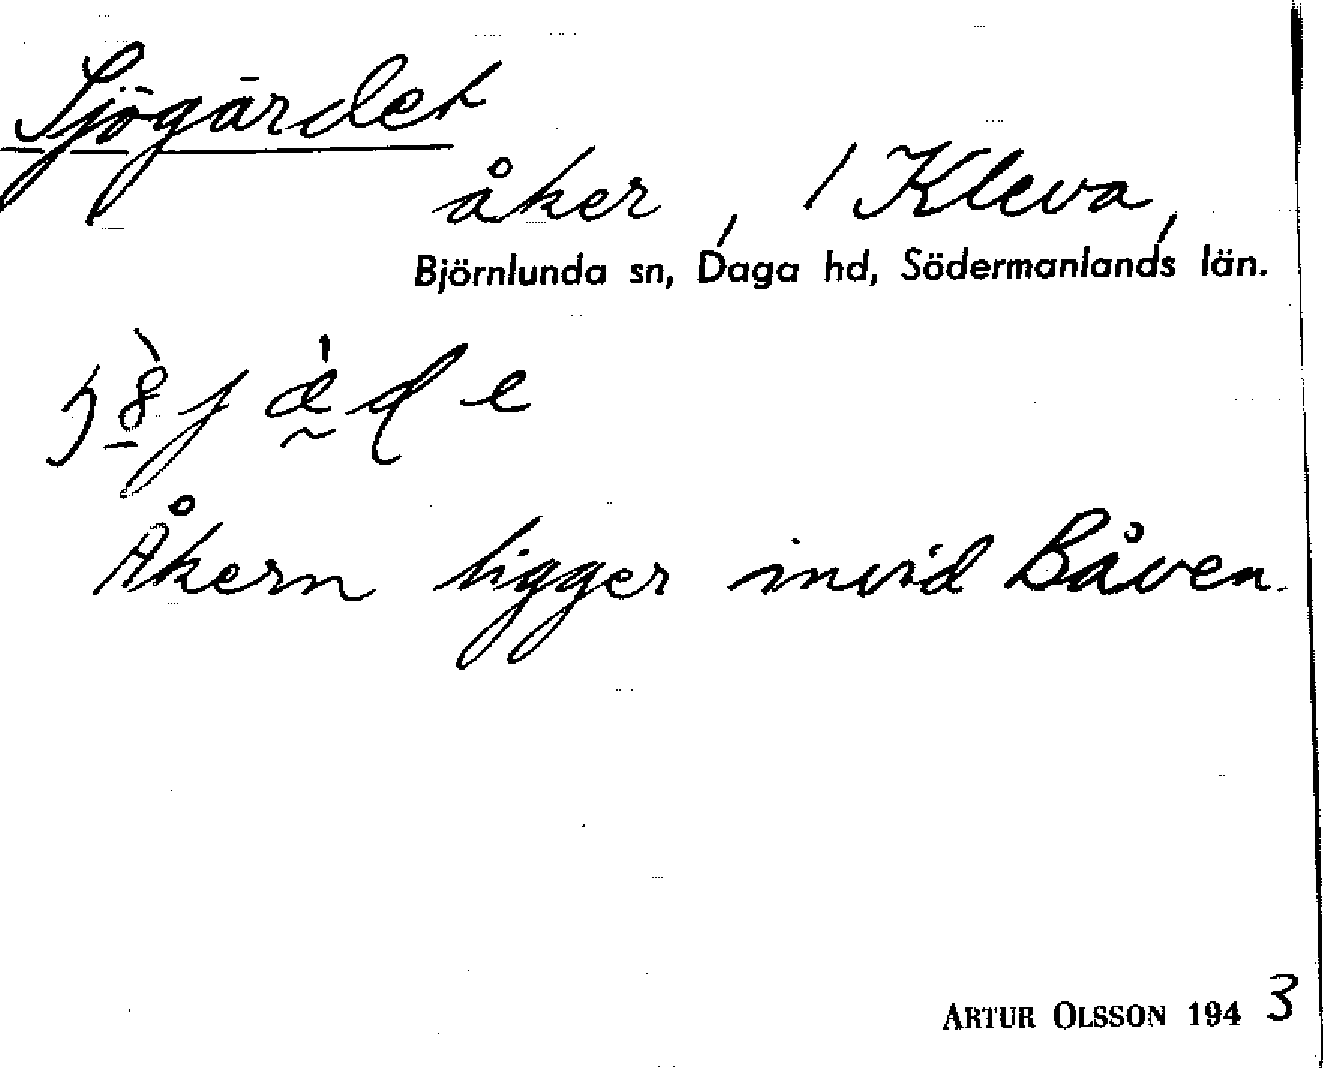 Sjögärdet
åker, / Kleva,
Björnlunda sn, Daga hd, Södermanlands län.
Åkern ligger invid Båven.
ARTUR OLSSON 1943